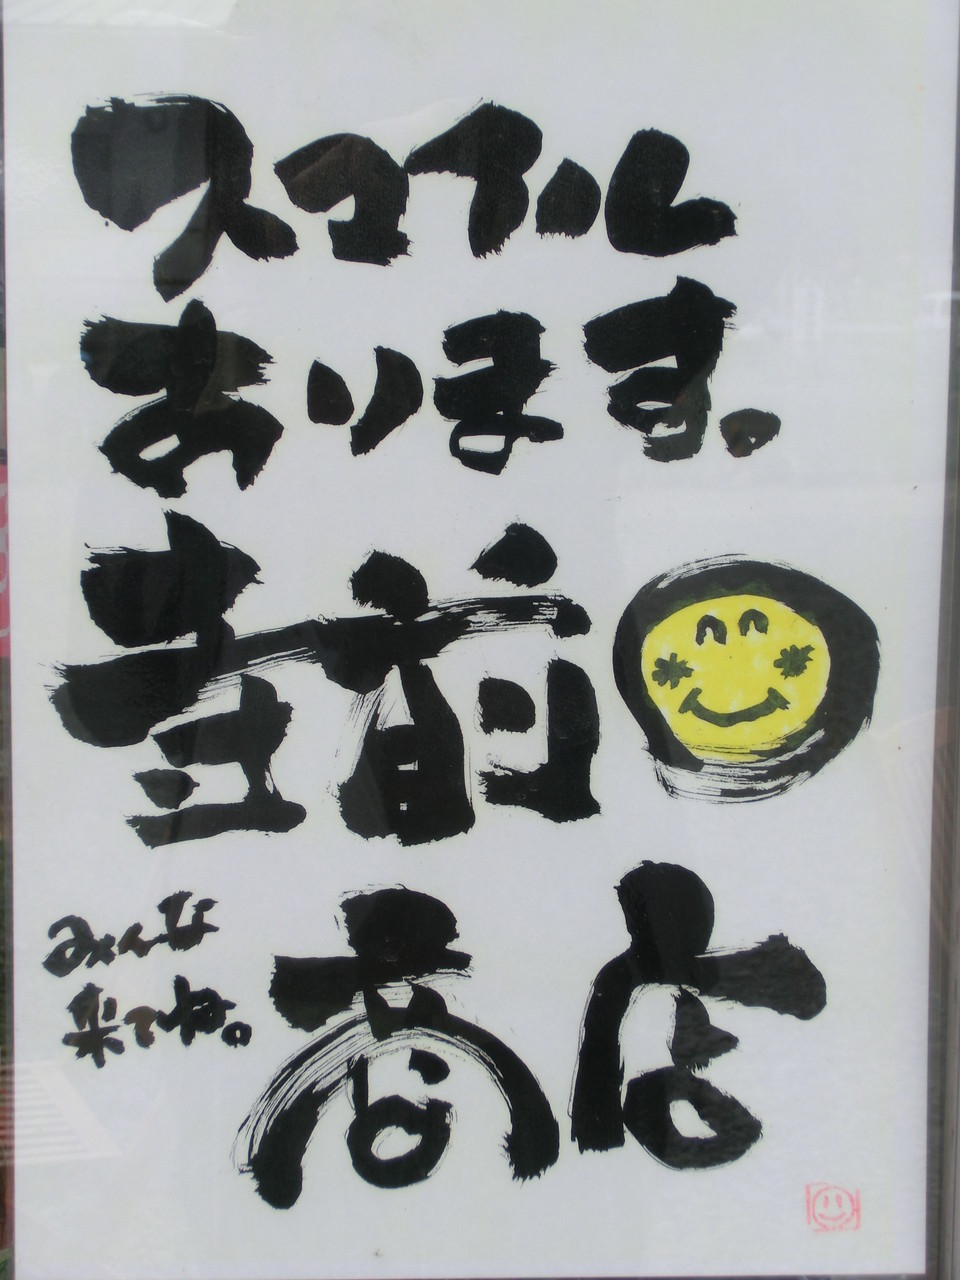 スマイル
あります。
前
商店
みんな
来てね。